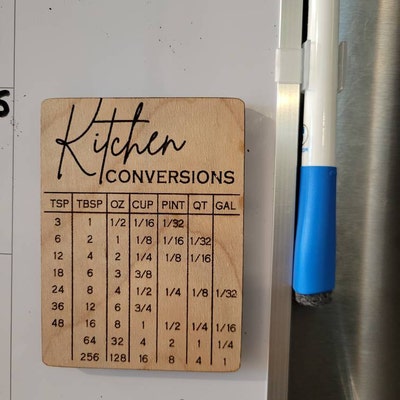 Kitchen
CONVERSIONS
TSP TBSP OZ CUP PINT QT GAL
3 1 1/2 1/16 1/32
6 2 1 1/8 1/16 1/32
12 4 2 1/4 1/8 1/16
18 6 3 3/8
24 8 4 1/2 1/4 1/8 1/32
36 12 6 3/4
48 16 8 1 1/2 1/4 1/16
64 32 4 2 1 1/4
256 128 16 8 4 1